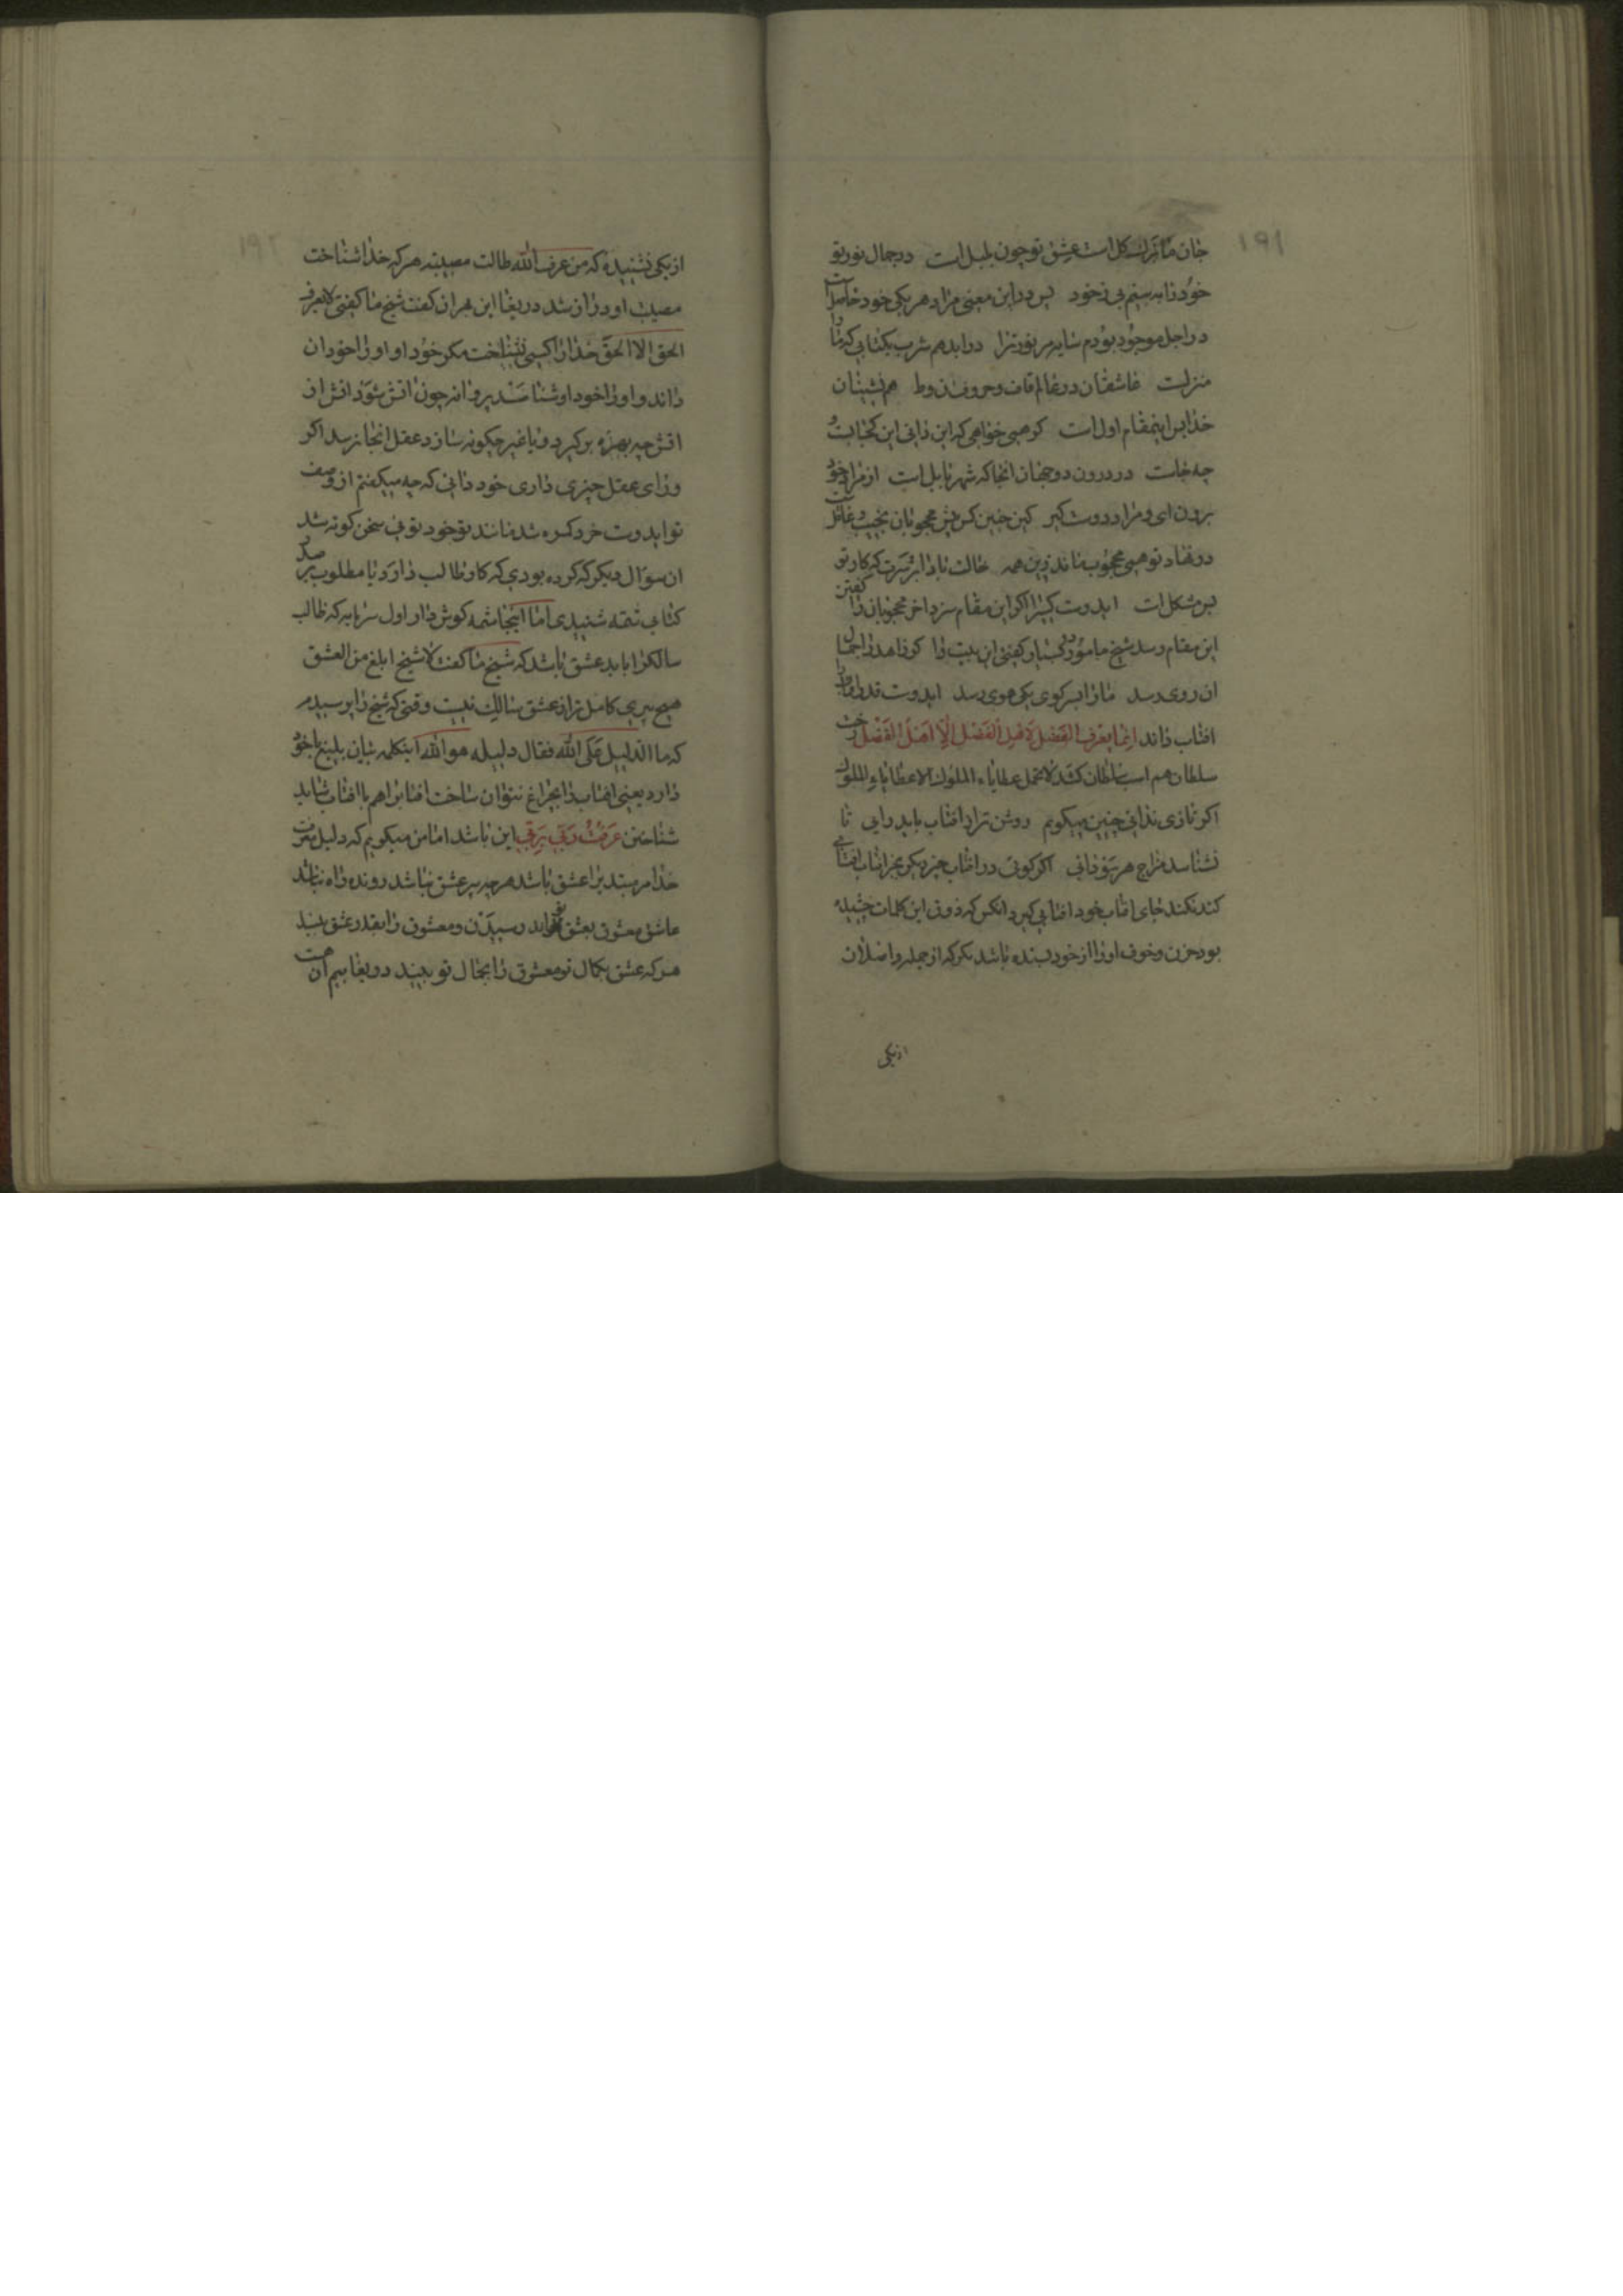 ۱۹۱
جان ما نزل کل است عشق تو چون بلبل است در جمال نور تو
خود را به بینم بی ز خود پس در این معنی مراد هر یکی خود حاصل است
در اجل موجود بودم سایه بر نور ترا در ابد هم شرب یکتایی که ما را
منزلست عاشقان در عالم قاف و حروف ن و ط هم نشینان
خدا پس اینمقام اول است کر همی خواهی که این دانی این کجایست و
چه جاست در درون دو جهان انجا که شهر بابل است از مراد خود
برون ای و مراد دوست کیر کین چنین کس پیش محجوبان نجیب و عاقل است
در نهاد تو همی محجوب ماند زین همه خالت بادا بر سرت که کار تو
بس مشکل است ایدوست کبیرا اکر این مقام سزد اخر محجوبان را کفتن
این مقام رسد شیخ ما مودود بسیار کفتی این بیت را کر زاهد را جمال
ان روی رسد ما را بسر کوی یکی هوی رسد ایدوست قدر او را
افتاب داند انما یعرف الفضل لاهل الفضل الا اهل الفضل رخت
سلطان هم اسب سلطان کشد لا تحمل عطایاء الملوک الا عطایاء الملوک
اکر تازی ندانی چنین میکویم روشن تر از افتاب باید رایی تا
نشناسد مزاج هر سودایی اکر کویی در افتاب چیز دیکر بجز افتاب افتابی
کند نکند جای افتاب خود افتابی کیرد انکس که ذوق این کلمات چشیده
بود حزن و خوف او را از خود بستده باشد نکر که از جمله واصلان
از یکی
۱۹۲
از یکی نشنیدۀ که من عرف الله طالت مصیبته هر که خدا شناخت
مصیبت او دراز شد دریغا این بهر ان کفت شیخ ما کفتی لا یعرف
الحق الا الحق خدا را کسی نشناخت مکر خود او او را خود ان
داند و او را خود او شناسد پروانه چون اتش شود اتش از
اتش چه بهره برکیرد و با غیر چکونه سازد عقل انجا نرسد اکر
ورای عقل چیزی داری خود دانی که چه میکفتم از وصف
تو ایدوست خرد کمره شد مانند تو خود توی سخن کوته شد
ان سوال دیکر که کرده بودی که کار طالب دارد یا مطلوب در صدر
کتاب شمه شنیدی اما اینجا شمه کوش دار اول سرمایه که طالب
سالکرا باید عشق باشد که شیخ ما کفت لا شیخ ابلغ من العشق
هیچ پیری کامل تر از عشق سالک نیست وقتی که شیخ را پرسیدم
که ما الدلیل علی الله فقال دلیله هو الله اینکلمه بیان بلیغ با خود
دارد یعنی افتاب را بچراغ نتوان شناخت افتابرا هم با افتاب شاید
شناختن عرفت ربی بربی این باشد اما من میکویم که دلیل معرفت
خدا مر مبتدیرا عشق باشد هر چه پیر عشق نباشد رونده راه نباشد
عاشق معشوق بعشق تواند رسیدن و معشوق را بقدر عشق بیند
هر که عشق بکمال تر معشوق را بجمال تر بیند دریغا بیم ان هست